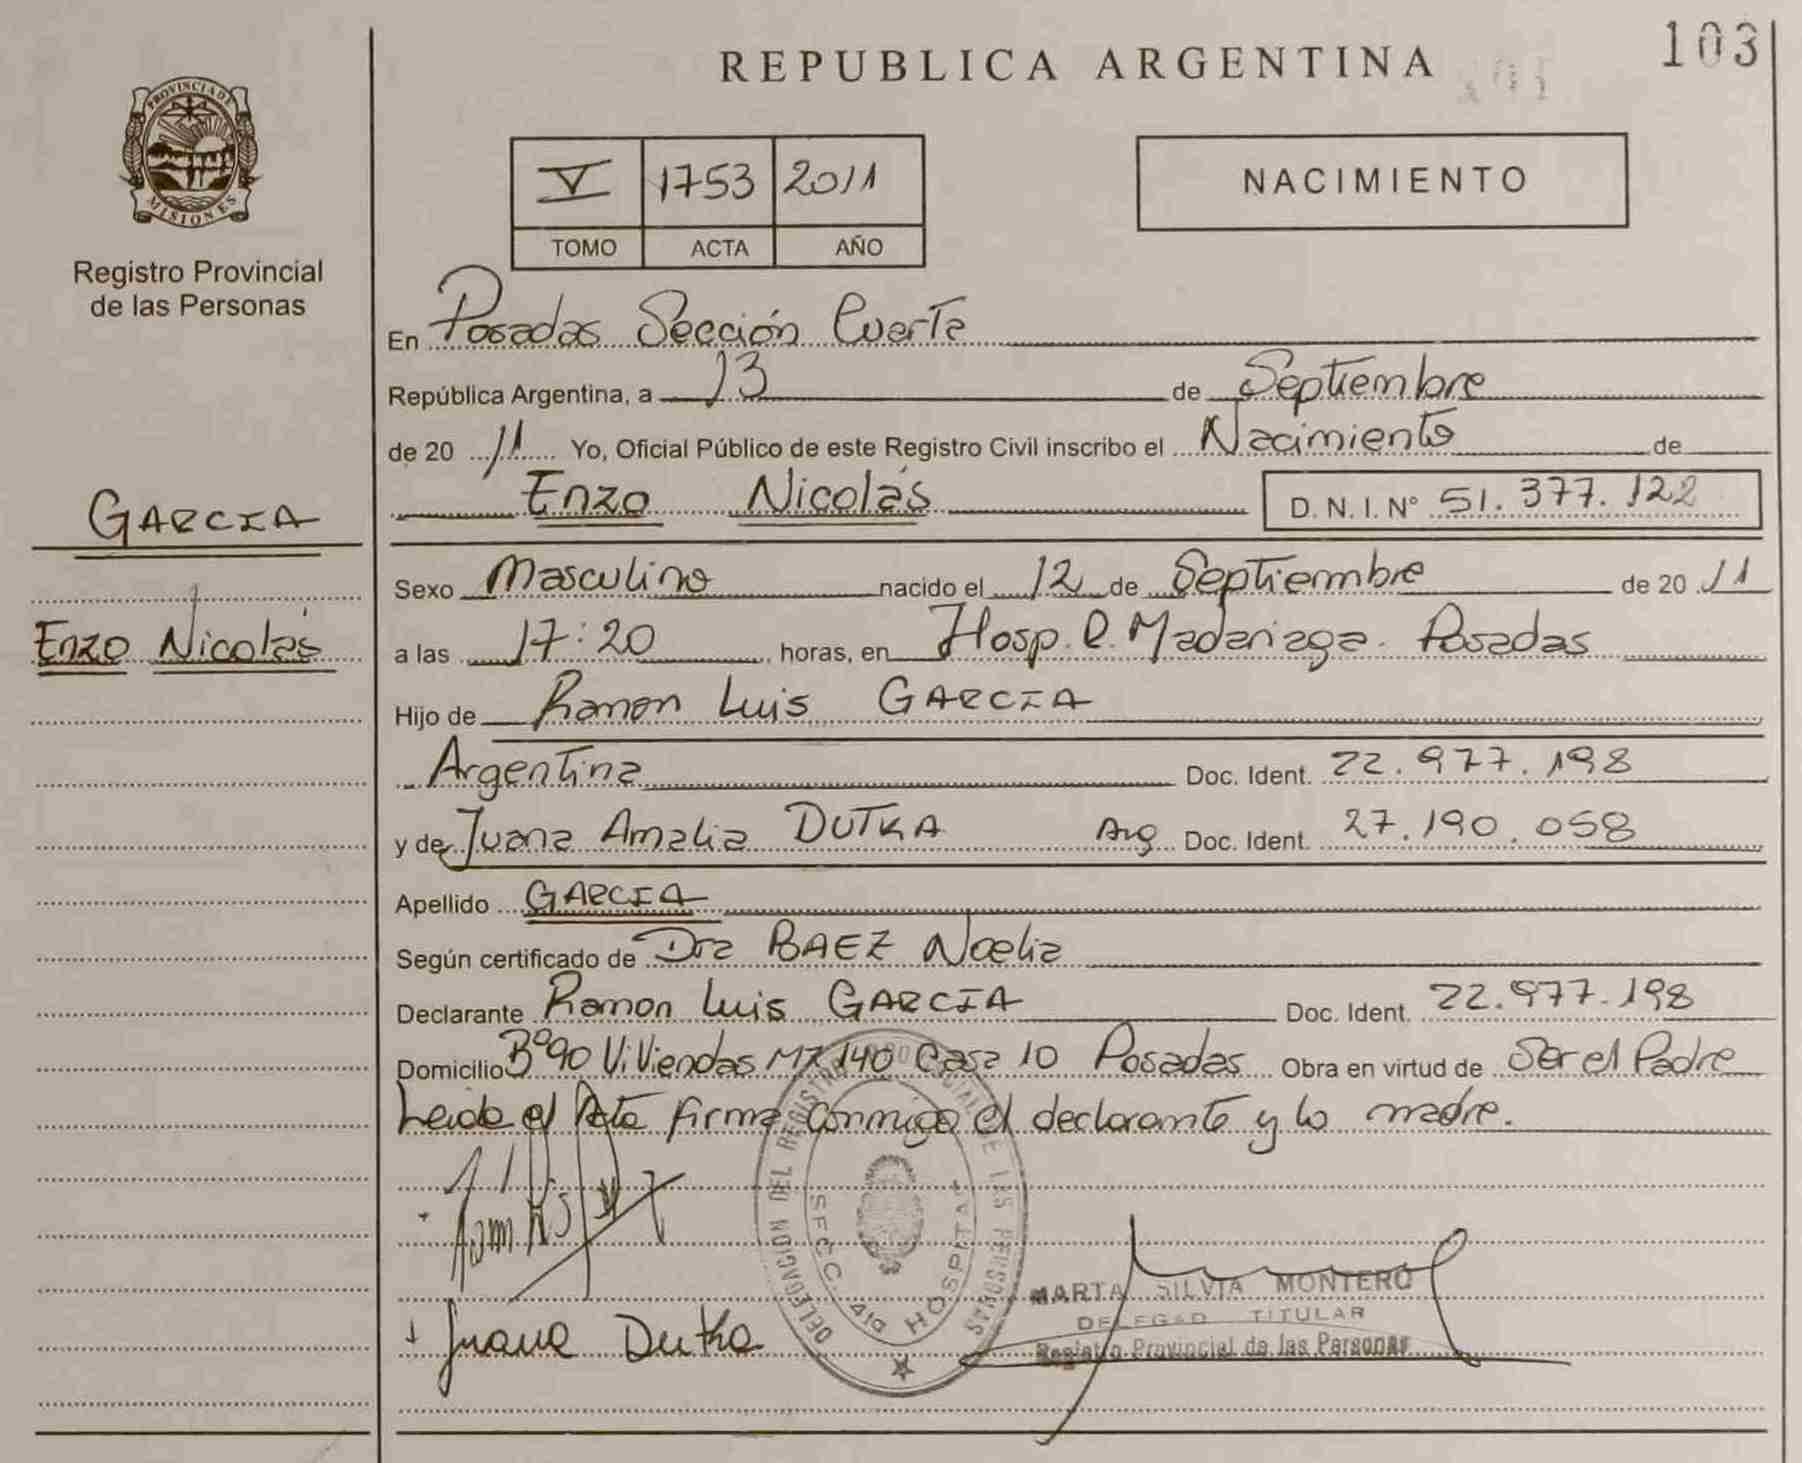 REPUBLICA ARGENTINA
103
PROVINCIA DE
MISIONES
Registro Provincial
de las Personas
V 1753 2011
TOMO ACTA AÑO
NACIMIENTO
En Posadas Sección Cuarta
República Argentina, a 13 de Septiembre
de 20 11 Yo, Oficial Público de este Registro Civil inscribo el Nacimiento de
Enzo Nicolás D. N. I. Nº 51.377.122
GARCIA
Enzo Nicolás
Sexo Masculino nacido el 12 de Septiembre de 20 11
a las 17:20 horas, en Hosp. R. Madariaga. Posadas
Hijo de Ramon Luis GARCIA
Argentina Doc. Ident. 22.977.198
y de Juana Amalia DUTKA Arg Doc. Ident. 27.190.058
Apellido GARCIA
Según certificado de Dra BAEZ Noelia
Declarante Ramon Luis GARCIA Doc. Ident. 22.977.198
Domicilio Bº 90 Viviendas Mz 140 Casa 10 Posadas Obra en virtud de Ser el Padre
Leida el Acta firma conmigo el declarante y la madre.
DELEGACION DEL REGISTRO PROVINCIAL DE LAS PERSONAS
SECC. 4ta HOSPITAL
Juana Dutka
MARTA SILVIA MONTERO
DELEGAD TITULAR
Registro Provincial de las Personas